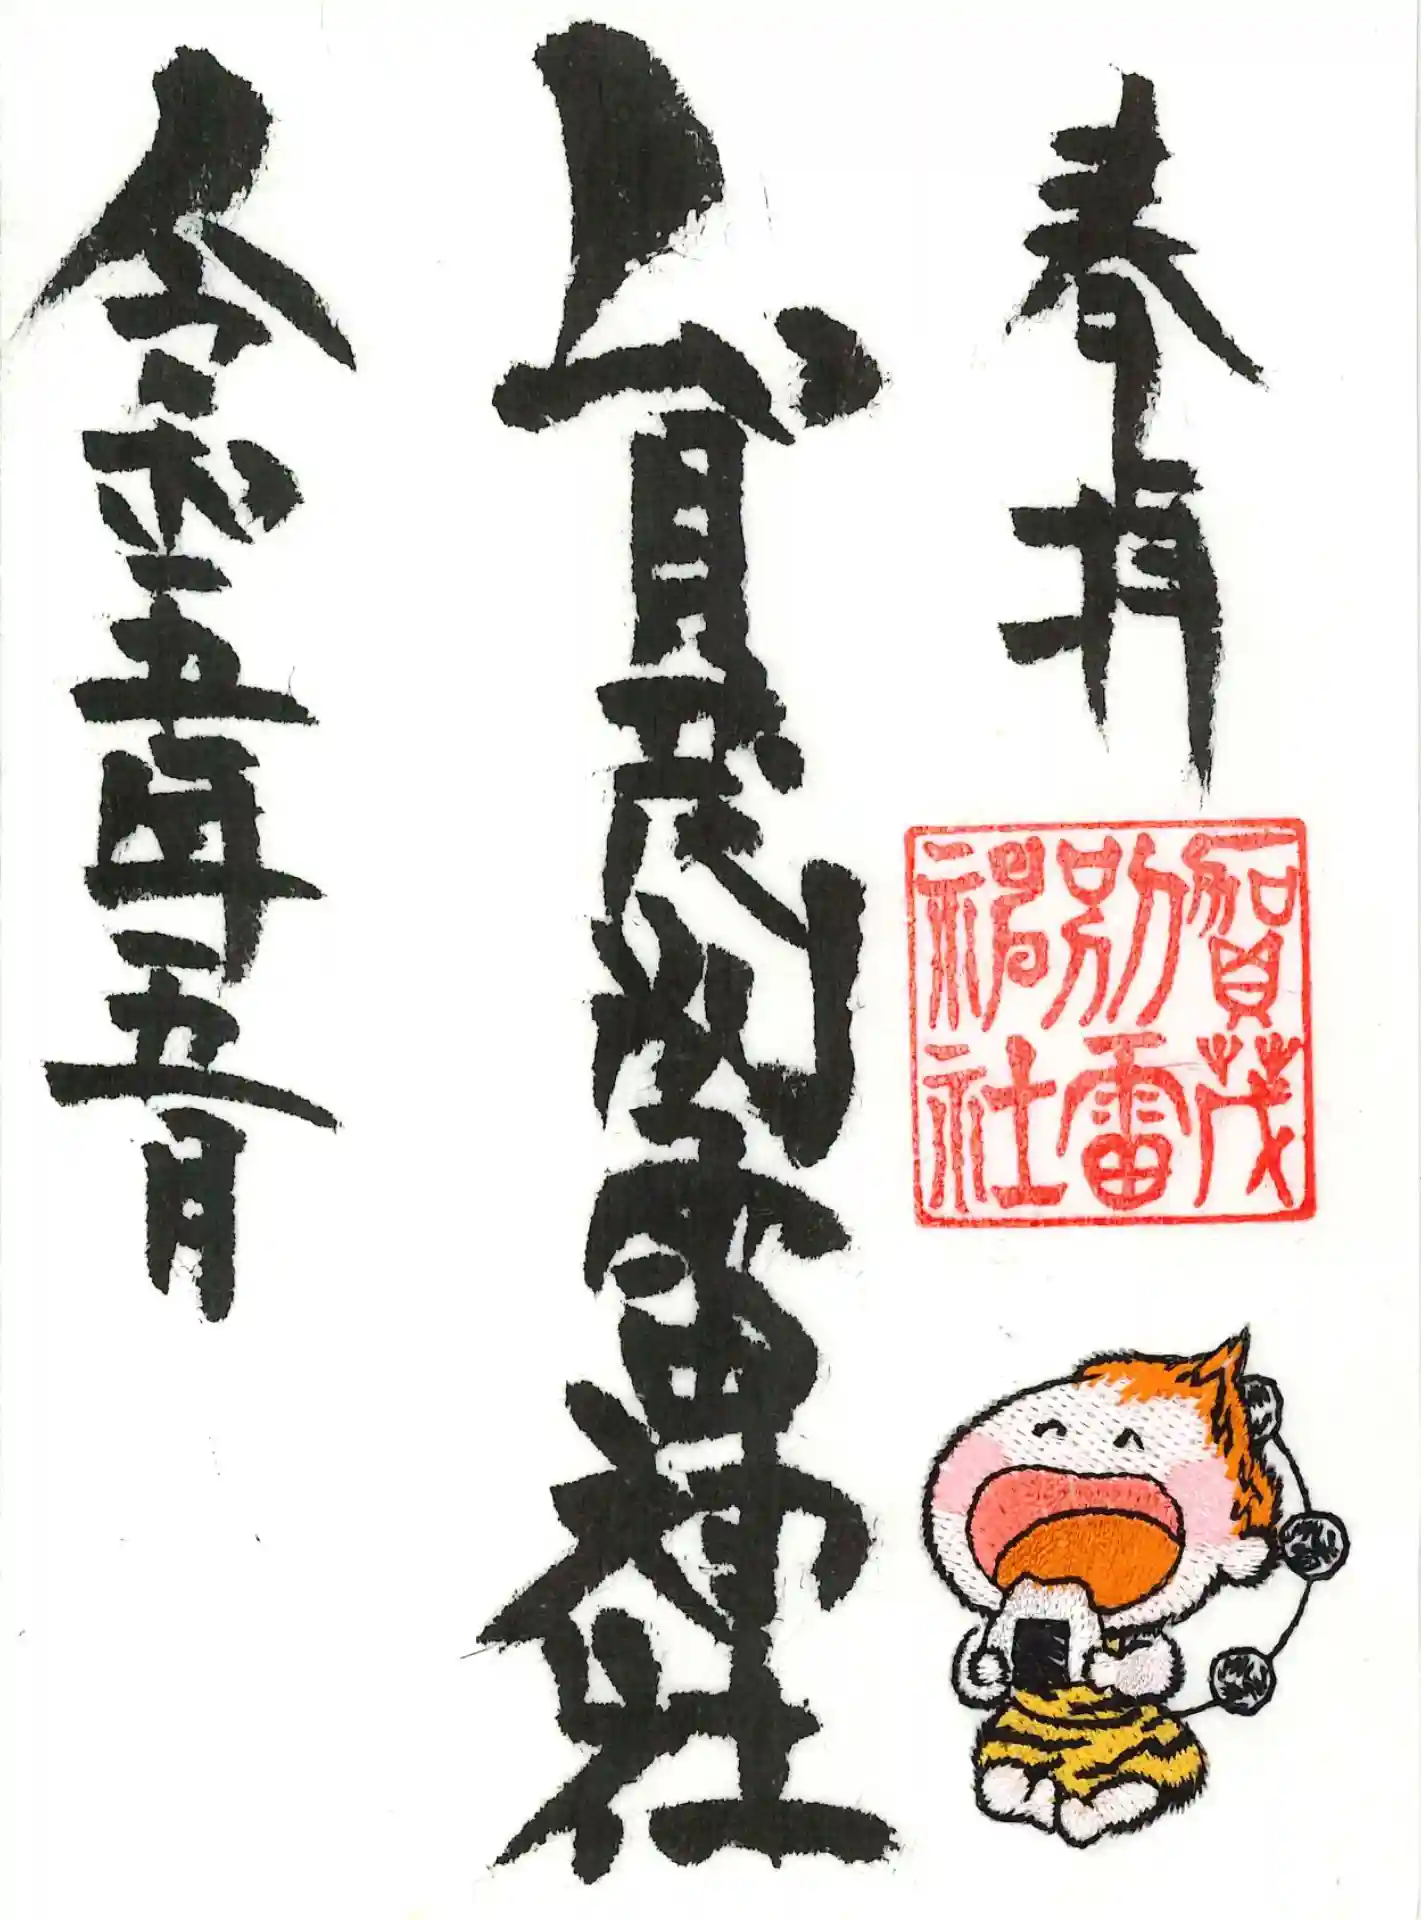 奉拝
賀茂別雷神社
令和五年五月
賀茂
別雷
神社